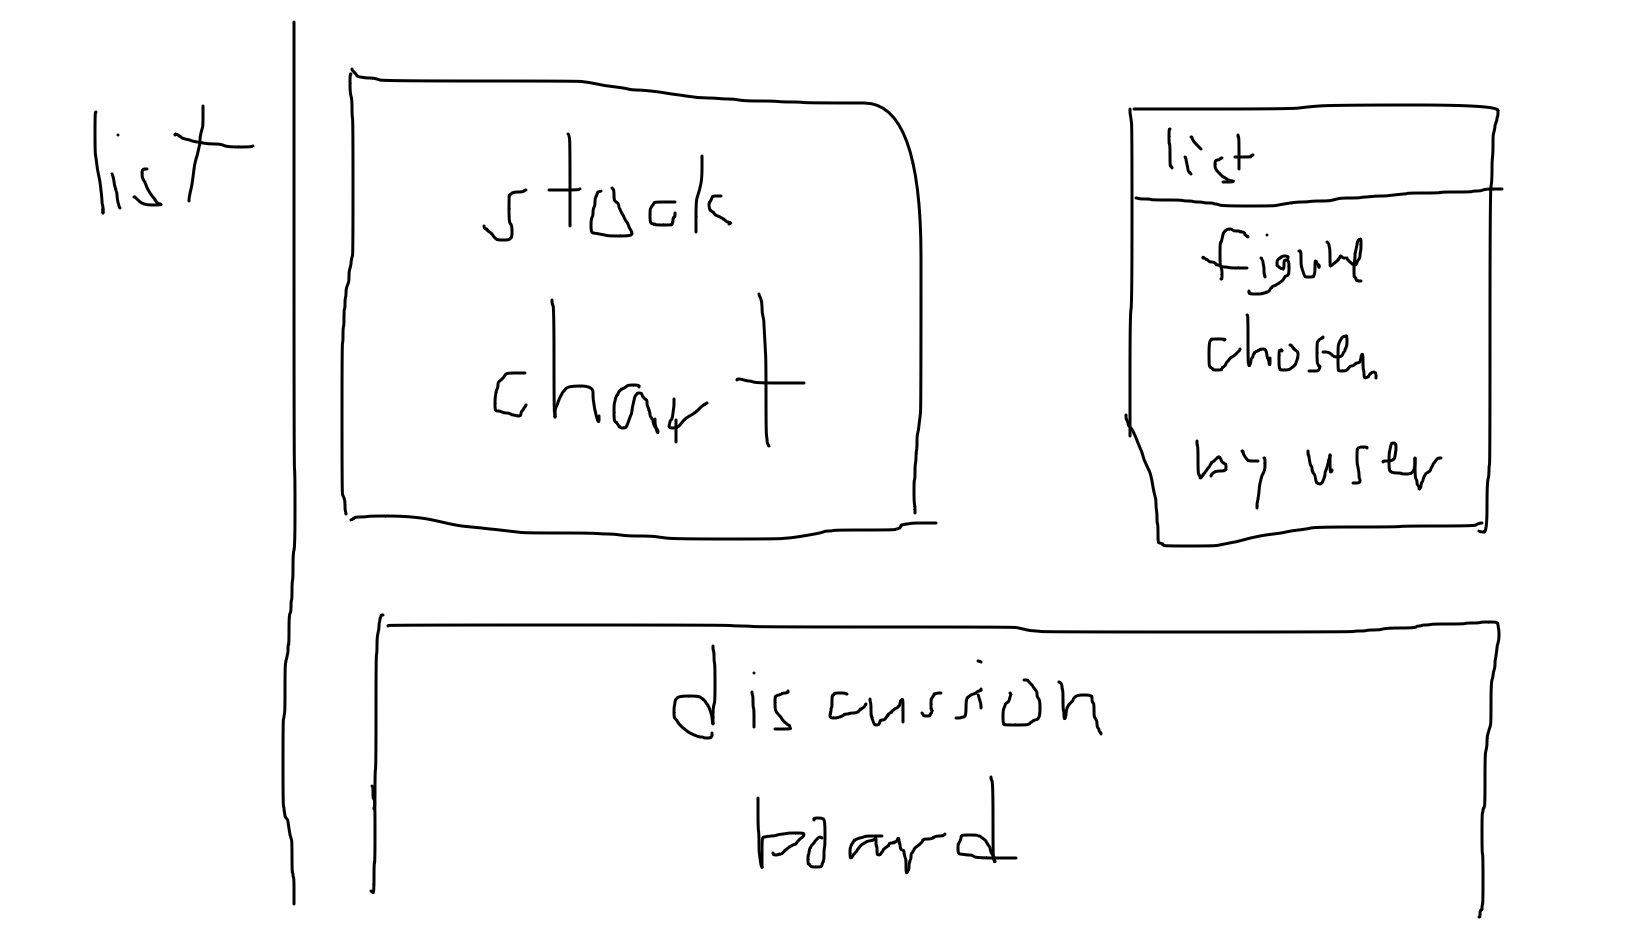 list
stock
chart
list
figure
chosen
by user
discussion
board